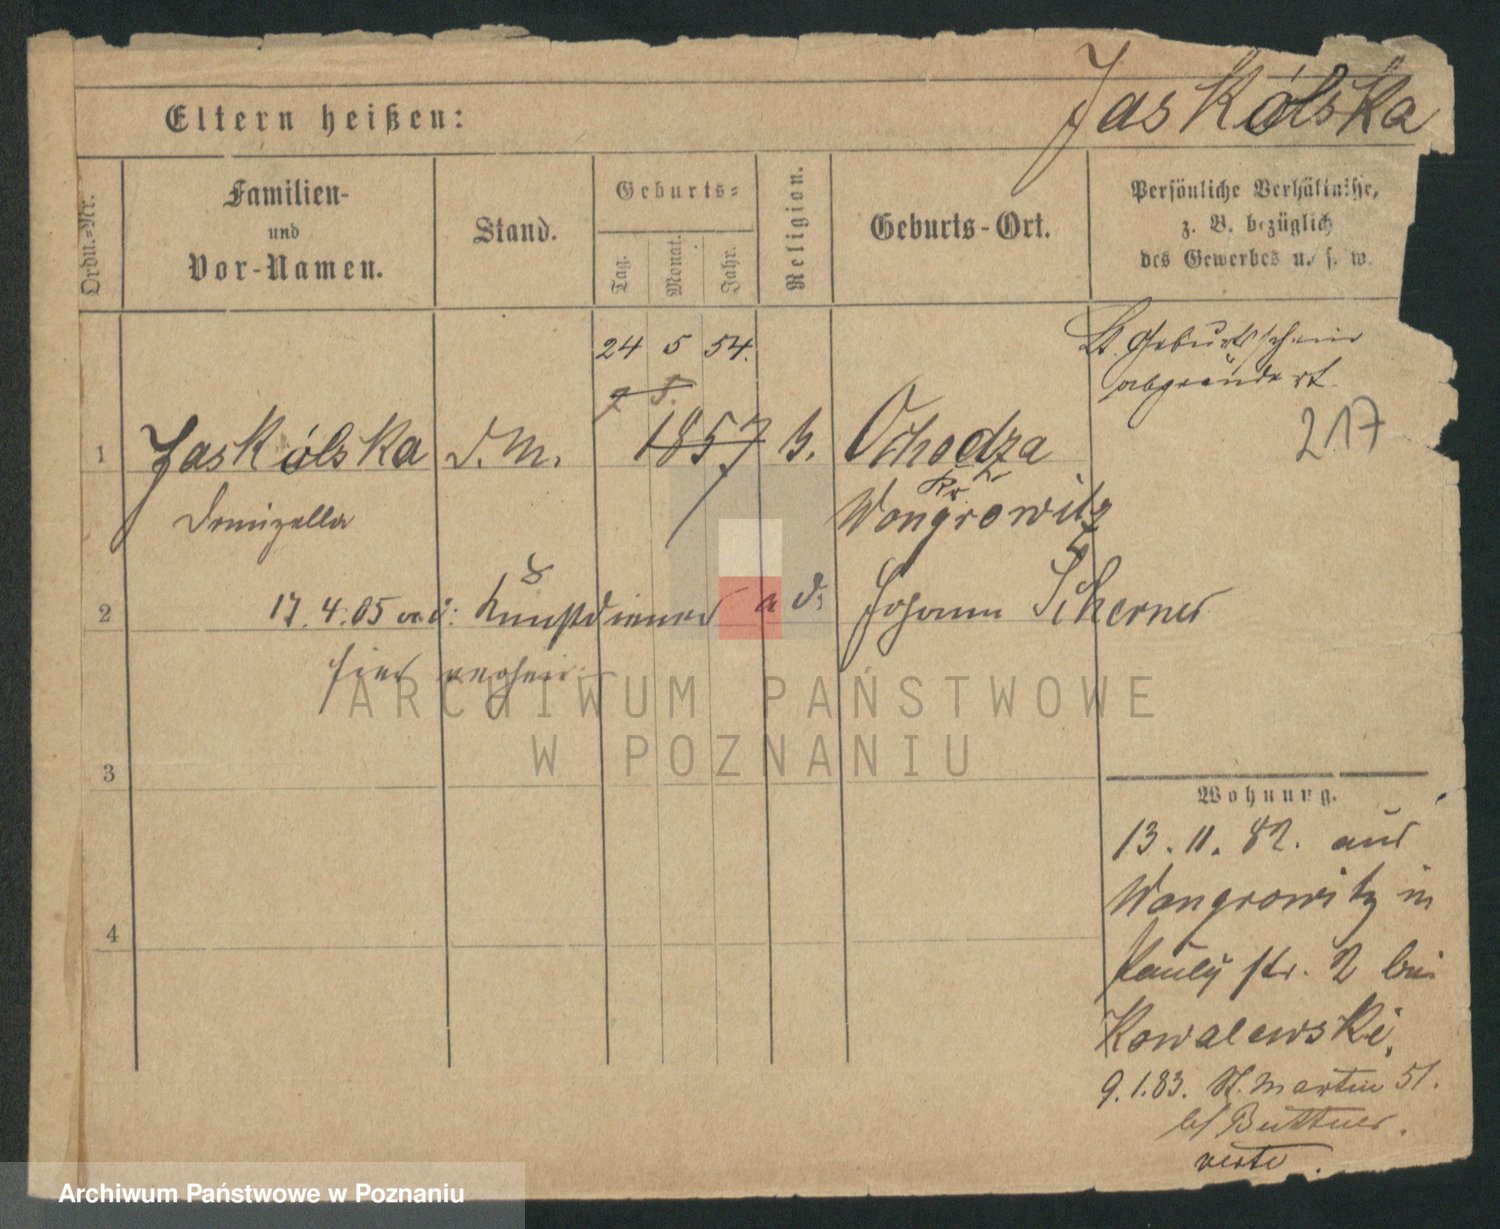 Jaskólska
Eltern heißen:
Ordn.-Nr.
Familien-
und
Vor-Namen.
Stand.
Geburts-
Tag.
Monat.
Jahr.
Religion.
Geburts-Ort.
Persönliche Verhältnisse,
z. B. bezüglich
des Gewerbes u. s. w.
24 5 54.
Lt. Geburtsschein
abgeändert.
9 5.
217
1 Jaskólska d. M. 1857 k. Ochodza
Kr.
Wongrowitz
2 17. 4. 05 Johann Scherner
hier
ARCHIWUM PAŃSTWOWE
W POZNANIU
3
Wohnung.
13. 11. 82. aus
Wongrowitz in
Pauly str. 2 bei
Kowalewski.
4
9. 1. 83. St. Martin 51.
b/ Buttner.
verte.
Archiwum Państwowe w Poznaniu